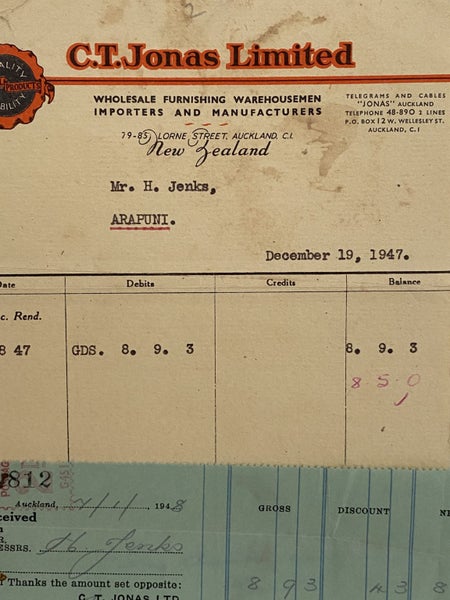 ALITY
PRODUCTS
BILITY
C.T. Jonas Limited
WHOLESALE FURNISHING WAREHOUSEMEN
IMPORTERS AND MANUFACTURERS
79-85 LORNE STREET, AUCKLAND, C.1.
New Zealand
TELEGRAMS AND CABLES
"JONAS" AUCKLAND
TELEPHONE 48-890 2 LINES
P.O. BOX 12 W. WELLESLEY ST.
AUCKLAND, C.1
Mr. H. Jenks,
ARAPUNI.
December 19, 1947.
ate Debits Credits Balance
c. Rend.
8 47 GDS. 8. 9. 3 8. 9. 3
8 5. 0
812
Auckland, 2/1/ 1948
ceived
GROSS DISCOUNT NE
ESSRS. H Jenks
Thanks the amount set opposite: 8 9 3 4 3 8
C. T. JONAS LTD